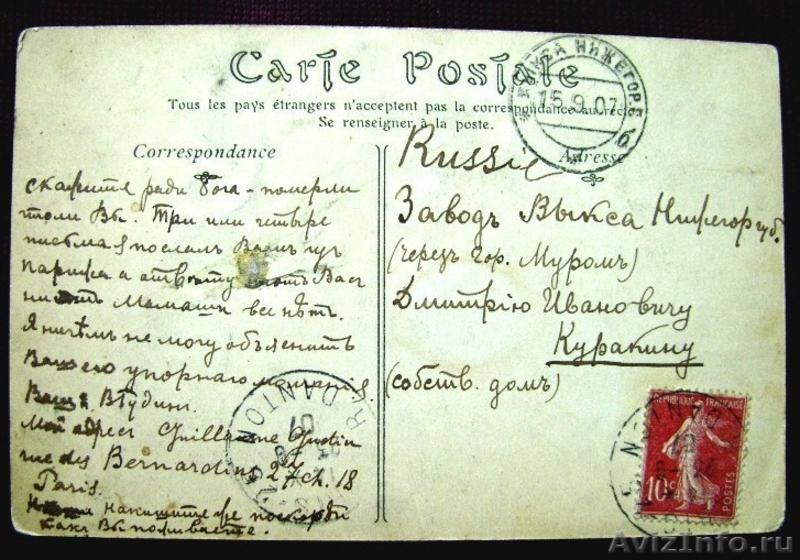 Carte Postale
Tous les pays étrangers n'acceptent pas la correspondance au recto
Se renseigner à la poste.
Correspondance
Adresse
ВЫКСА НИЖЕГОР. Г.
15.9.07
б
скажите ради бога - померли
толи Вы. Три или четыре
письма я послалъ Вамъ изъ
Парижа а отвѣту отъ Васъ
ни отъ Мамаши все нѣтъ.
Я ничѣмъ не могу объяснить
Вашего упорного молчанія.
Вашъ
Мой адрес Guillaume
rue des Bernardins 27 ch. 18
Paris.
Напишите же поскорѣй
какъ Вы поживаете.
Russie
Заводъ Выкса Нижегор губ.
(черезъ гор. Муромъ)
Дмитрію Ивановичу
Куракину
(собств. домъ)
R. DANTON
07
REPUBLIQUE FRANÇAISE
10c
POSTES
AvizInfo.ru